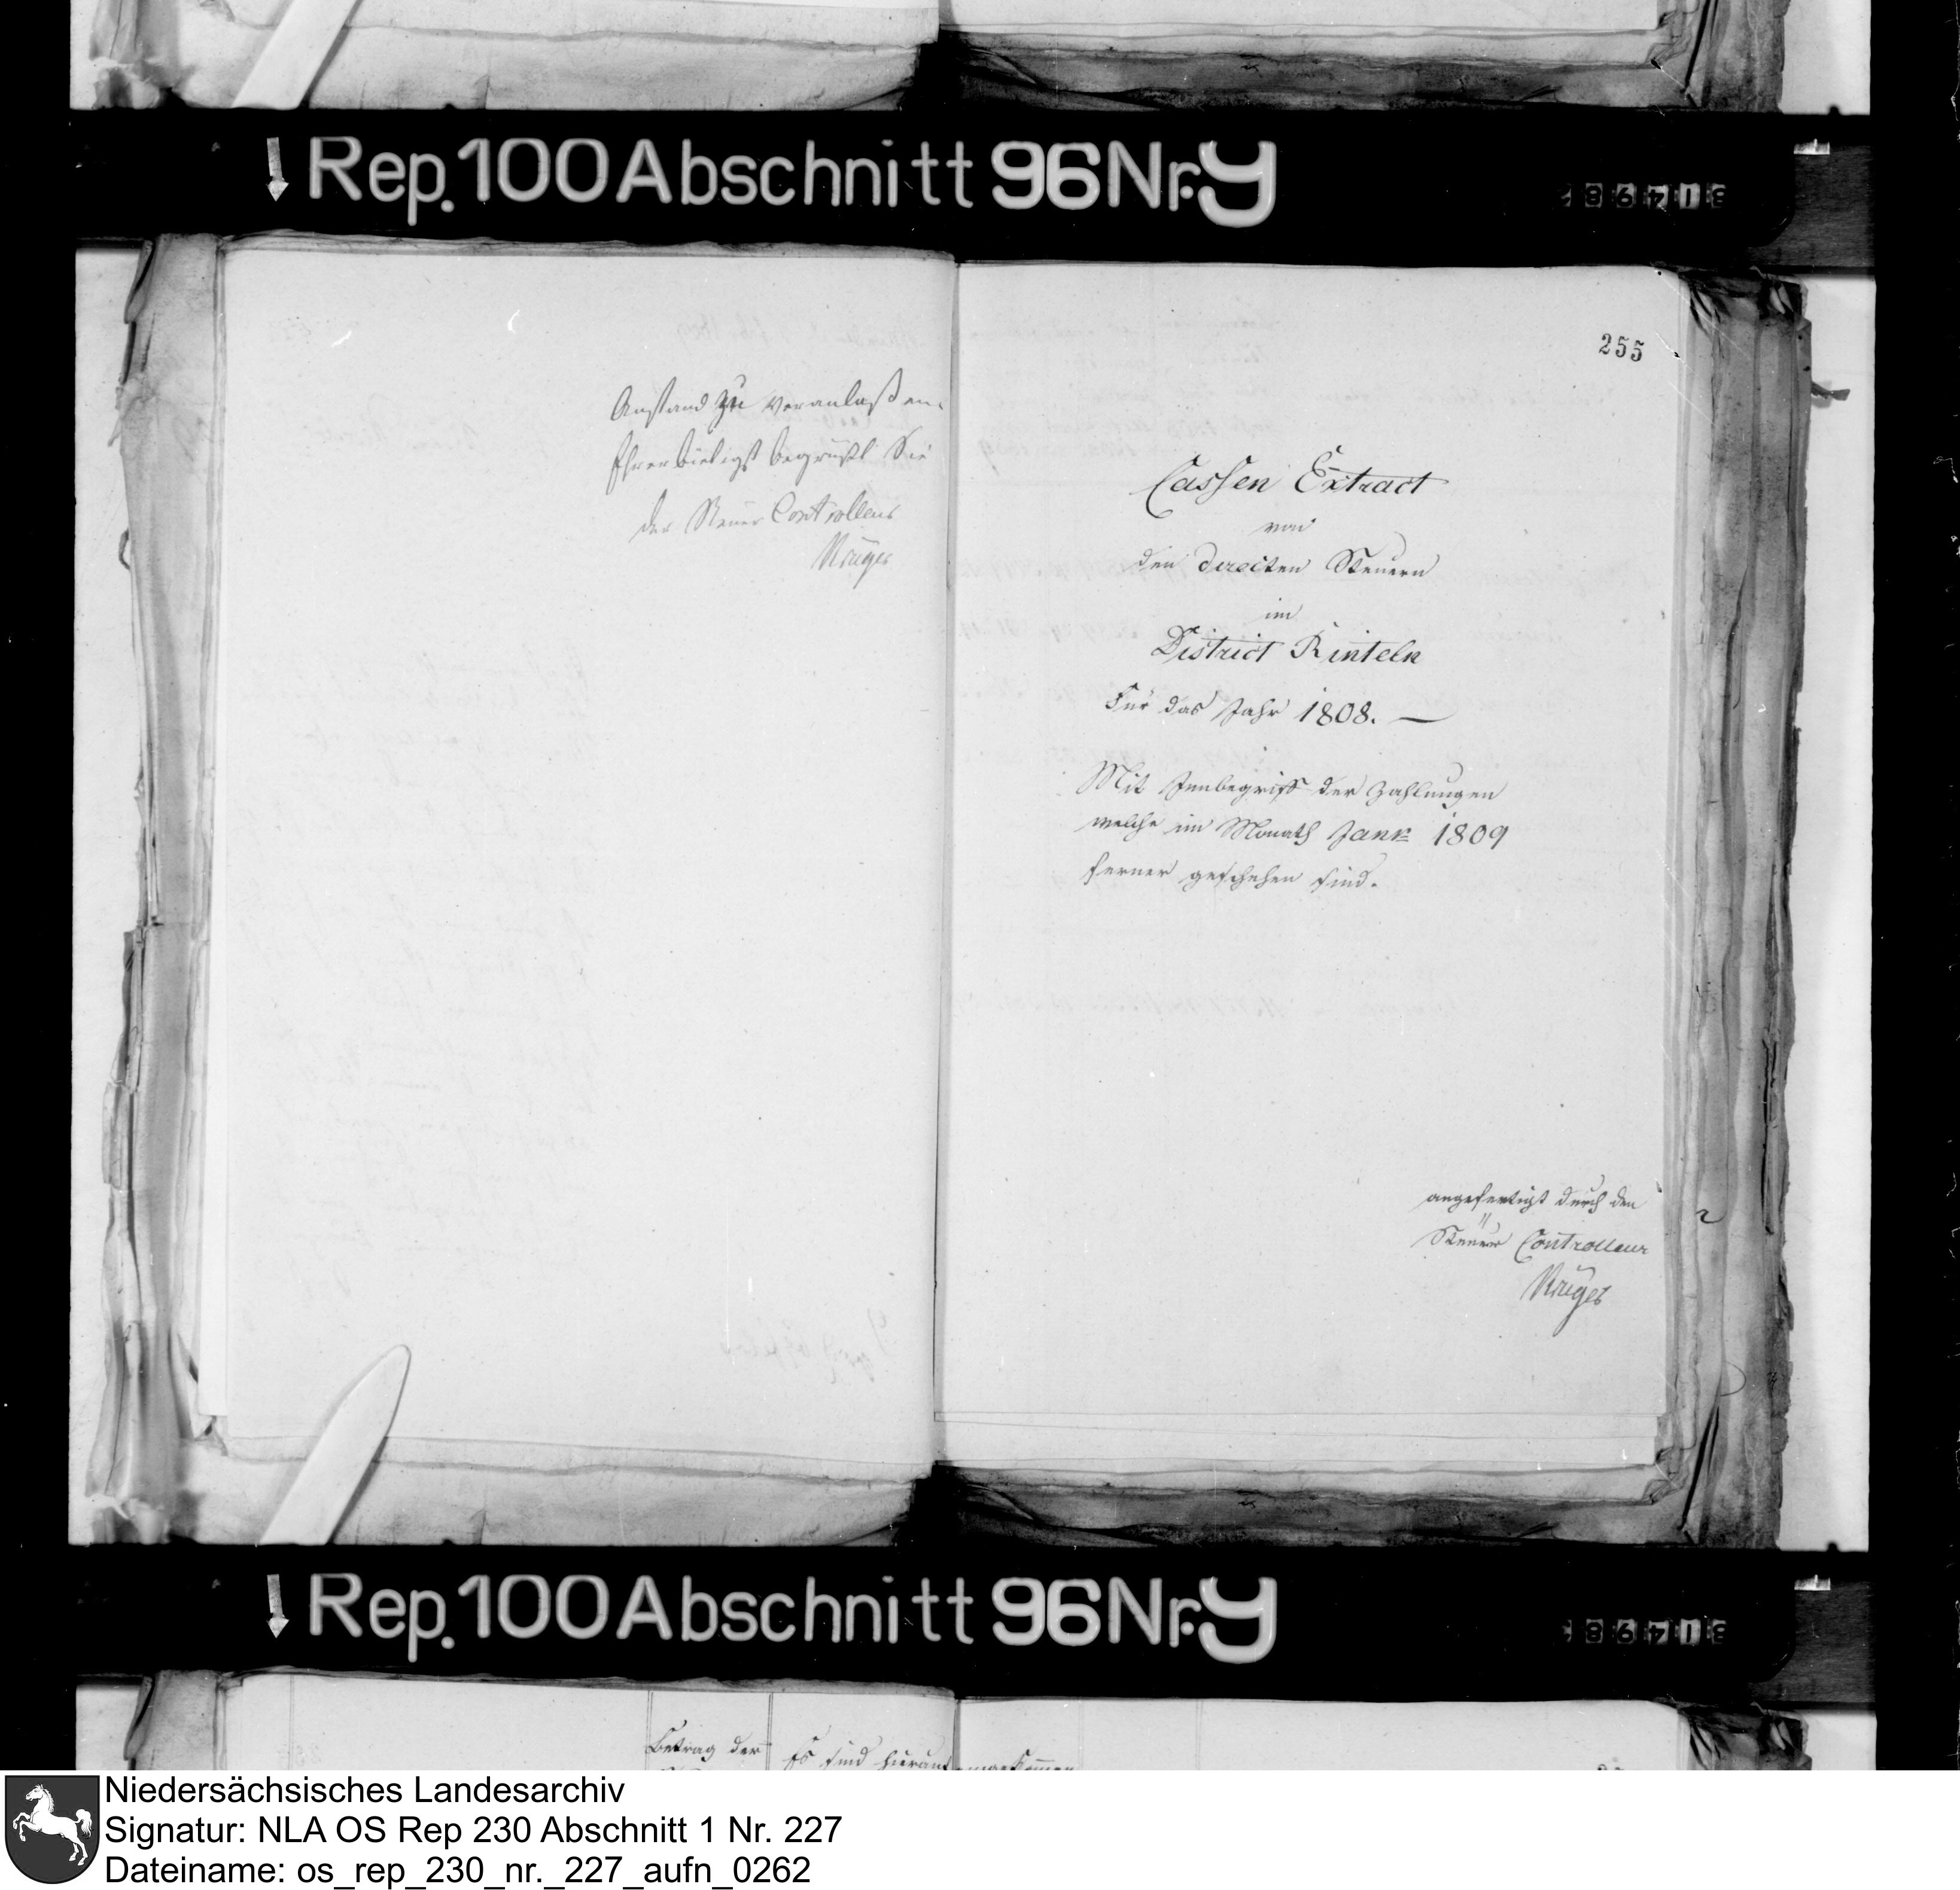 Rep. 100 Abschnitt 96 Nr. 9
Anstand zu veranlaßen.
Ehrerbietigst begrüßt Sie
der Steuer Controlleur
Krüger
255
Cassen Extract
von
den directen Steuern
im
District Rinteln
Für das Jahr 1808. —
Mit Innbegriff der Zahlungen
welche im Monath Janr 1809
ferner geschehen sind.
angefertigt durch den
Steuer Controlleur
Krüger
Rep. 100 Abschnitt 96 Nr. 9
Betrag der
Es sind hierauf
Niedersächsisches Landesarchiv
Signatur: NLA OS Rep 230 Abschnitt 1 Nr. 227
Dateiname: os_rep_230_nr._227_aufn_0262